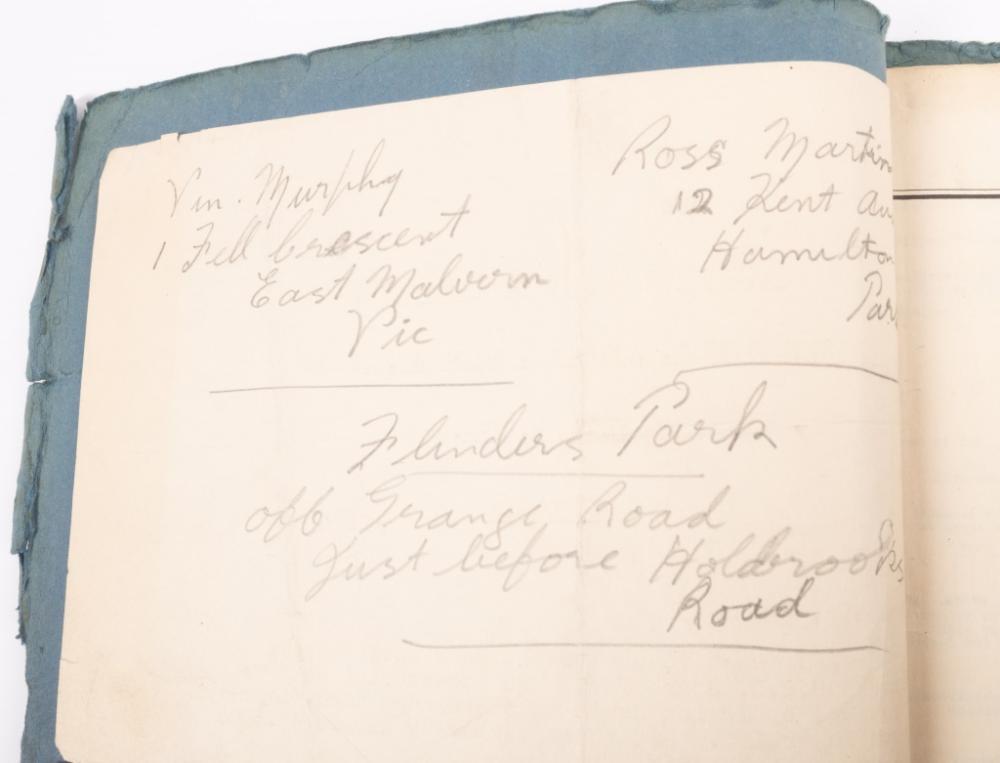 Vin. Murphy
1 Fell Crescent
East Malvern
Vic
Ross Martin
12 Kent
Hamilton
Flinders Park
off Grange Road
Just before Holdbrooks
Road